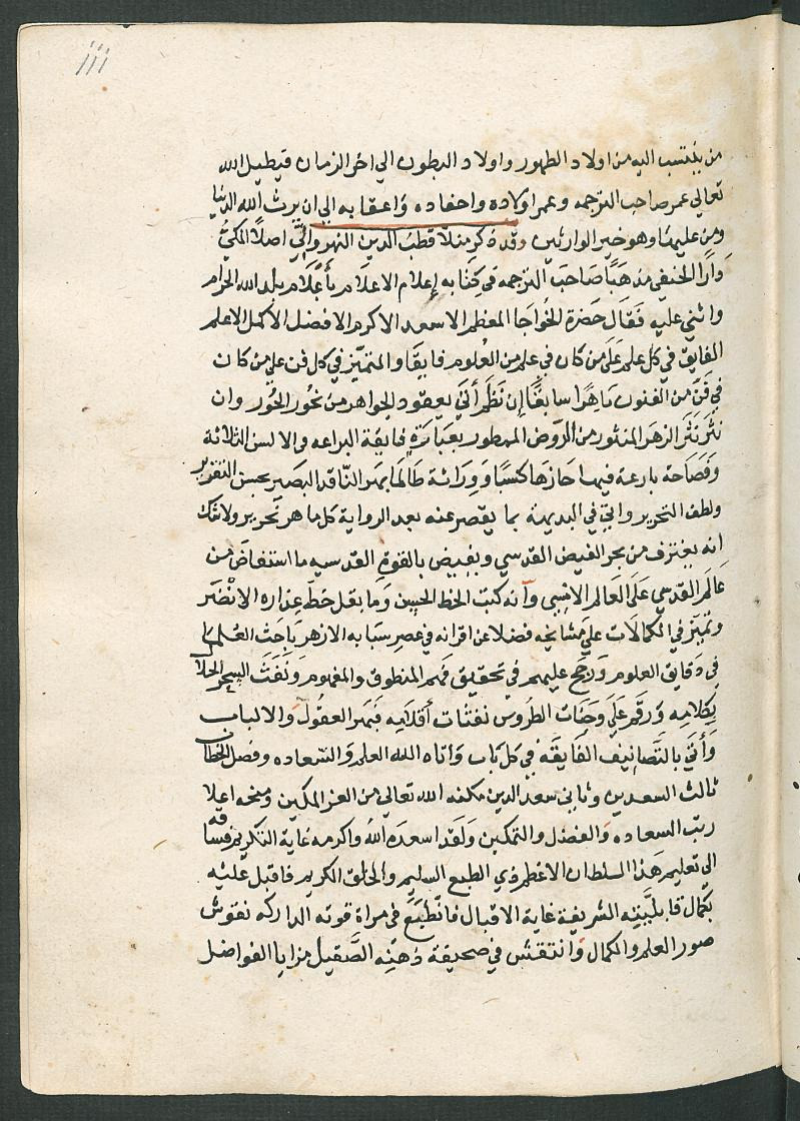 ١١١
من ينتسب اليه من اولاد الظهور واولاد البطون الي اخر الزمان فيطيل الله
تعالي عمر صاحب الترجمه وعمر اولاده واحفاده واعقابه الي ان يرث الله الدنيا
ومن عليها وهو خير الوارثين وقد ذكر منلا قطب الدين النهروالي اصلا المكي
دارا الحنفي مذهبا صاحب الترجمه في كتابه إعلام الاعلام بأعلام بلد الله الحرام
واثني عليه فقال حضرة الخواجا المعظم الاسعد الاكرم الافضل الاكمل الاعلم
الفايق في كل علم علي من كان في علم من العلوم فايقا والمتميز في كل فن علي من كان
في فن من الفنون ماهرا سابقا إن نظم أتي بعقود الجواهر من نحور الحور وان
نثر نثر الزهر المنثور من الروض الممطور بعبارة فايقة البراعه والالسن الثلاثة
وفصاحة بارعة فيها احازها كسبا ووراثة طالما بهر الناقد البصير بحسن التقرير
ولطف التحرير واتي في البديهة بما يقصر عنه بعد الروية كل ماهر نحرير ولاشك
انه يغترف من بحر الفيض القدسي ويفيض بالقوة القدسيه ما استفاض من
عالم القدس علي العالم الانسي وأنه كتب الخط الحسن وما بقل خط عذاره الانضر
وتميز في الكمالات علي مشايخه فضلا عن اقرانه في عصر شبابه الازهر باحث العلما
في دقايق العلوم ورجح عليهم في تحقيق فهم المنطوق والمفهوم ونفث السحر الحلال
بكلامه ورقم علي وجنات الطروس نفثات أقلامه فبهر العقول والالباب
وأتي بالتصانيف الفايقه في كل باب واتاه الله العلم والسعاده وفصل الخطاب
ثالث السعدين وثاني سعد الدين مكنه الله تعالي من العز المكين ومنحه اعلا
رتب السعاده والفضل والتمكين ولقد اسعده الله واكرمه غاية التكريم فساقه
الي تعليم هذا السلطان الاعظم ذي الطبع السليم والخلق الكريم فاقبل عليه
بكمال قابليته الشريفة غاية الاقبال فانطبع في مراة قوته الداركه نقوش
صور العلم والكمال وانتقش في صحيفة ذهنه الصقيل مزايا الفواضل